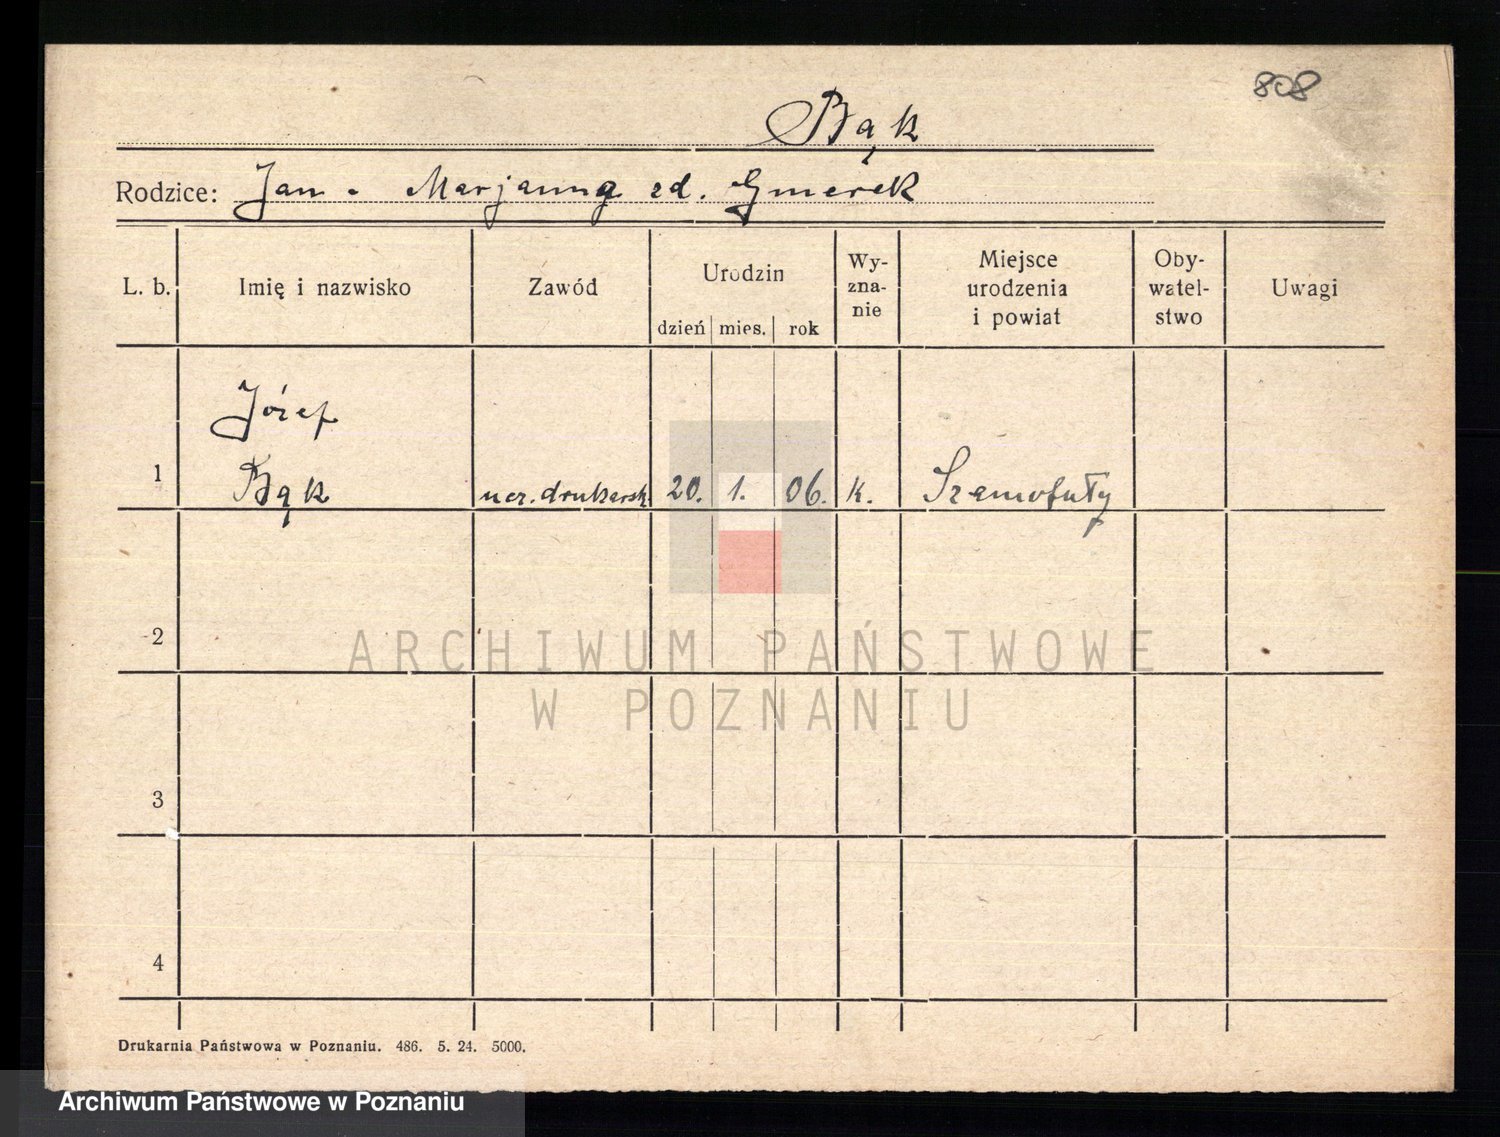 808
Bąk
Rodzice: Jan - Marjanna zd. Gmerek
L. b. Imię i nazwisko Zawód Urodzin Wy-zna-nie Miejsce urodzenia i powiat Oby-watel-stwo Uwagi
dzień mies. rok
Józef
1 Bąk ucz. drukarsk. 20. 1. 06. k. Szamotuły
2
ARCHIWUM PAŃSTWOWE
W POZNANIU
3
4
Drukarnia Państwowa w Poznaniu. 486. 5. 24. 5000.
Archiwum Państwowe w Poznaniu